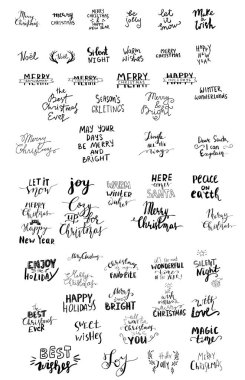 Merry Christmas
merry CHRISTMAS
MERRY CHRISTMAS AND HAPPY NEW YEAR
be jolly
let it snow
Make a wish
Noel
NOEL
Silent NIGHT
Warm wishes
MERRY CHRISTMAS
HAPPY NEW YEAR
MERRY
MERRY
MERRY
HAPPY
the Best Christmas Ever
SEASON'S GREETINGS
Merry & Bright
WINTER WONDERLAND
Merry Christmas
MAY YOUR
DAYS
BE MERRY
AND
BRIGHT
Dear Santa, I can Explain
LET IT SNOW
joy
WARM winter wishes
HERE comes SANTA
PEACE on EARTH
MERRY Christmas AND HAPPY NEW YEAR
Cozy up for Christmas
Merry Christmas
Merry Christmas
ENJOY the HOLIDAY
Merry Christmas
Merry Christmas
IT'S THE MOST WONDERFUL TIME OF THE YEAR!
SILENT Night
The BEST Christmas EVER
HAPPY HOLIDAYS
Merry and BRIGHT
CHRISTMAS
with Love
sweet wishes
all I want for CHRISTMAS is YOU
MAGIC time
BEST wishes
Joy
Holly Jolly
MERRY CHRISTMAS